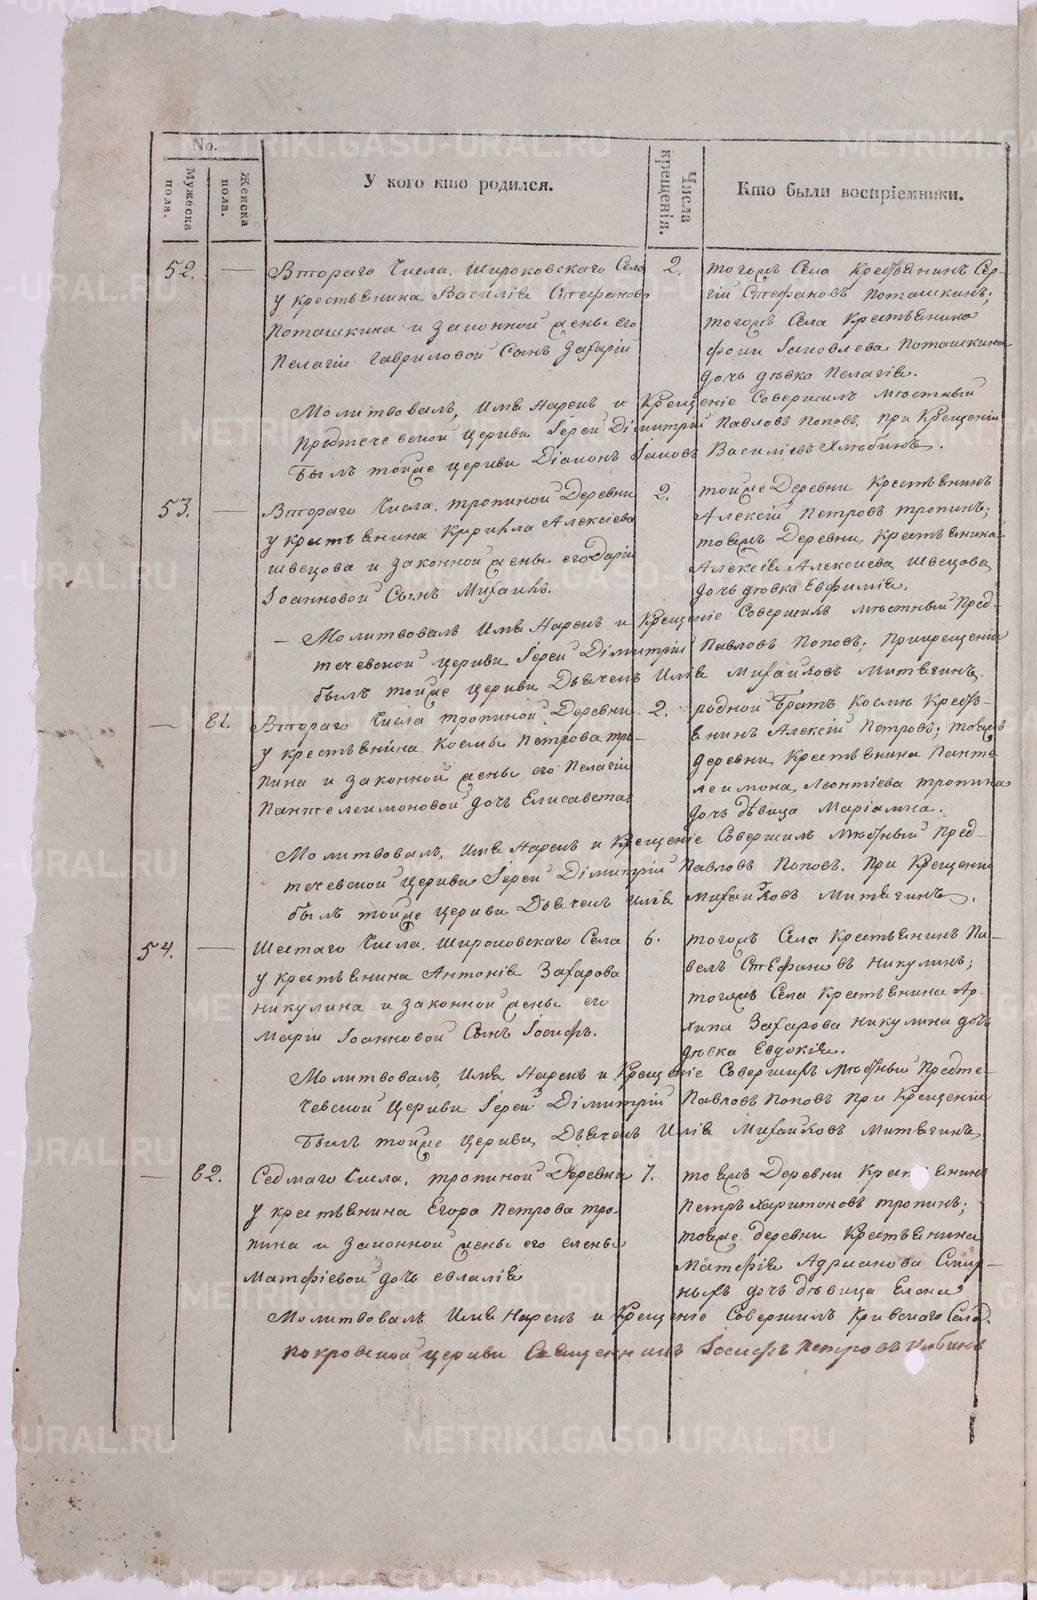 No.
Мужеска пола.
Женска пола.
У кого кто родился.
Числа крещенія.
Кто были воспріемники.
52. — Втораго Числа. Широковскаго Села 2.
у крестьянина Василія Стефанова
Поташкина и законной жены его
Пелагіи Гавриловой Сынъ Захарій
тогожъ Села Крестьянинъ Сер-
гій Стефановъ Поташкинъ;
тогожъ Села Крестьянина
Фоки Іаковлева Поташкина
дочь дѣвка Пелагія.
Молитвовалъ, Имя Нарекъ и Крещеніе Совершилъ мѣстный
Предтечевской Церкви Іерей Димитрій Павловъ Поповъ, при Крещеніи
Былъ тойже Церкви Діаконъ Іаковъ Василіевъ Хлюбинъ.
53. — Втораго Числа. тропиной Деревни 2.
у крестьянина Кирилла Алексіева
швецова и законной жены его Даріи
Іоанновой Сынъ Михаилъ.
тойже Деревни Крестьянинъ
Алексій Петровъ тропинъ;
тоежъ Деревни, Крестьянина
Алексія Алексиева Швецова
дочь дѣвка Евфимія.
— Молитвовалъ Имя Нарекъ и Крещеніе Совершилъ мѣстный Пред-
течевской Церкви Іерей Димитрій Павловъ Поповъ; При крещеніи
былъ тойже Церкви, Дьячекъ Илія Михайловъ Митягинъ.
— 61. Втораго Числа тропиной Деревни 2.
у крестьянина Космы Петрова тро-
пина и законной жены его Пелагіи
Пантелеимоновой дочь Елисавета
родной Братъ Космы Кресть-
янинъ Алексій Петровъ; тоежъ
деревни, Крестьянина Панте
леимона Леонтіева тропина
дочь дѣвица Маріамна.
Молитвовалъ, Имя Нарекъ и Крещеніе Совершилъ Мѣстный Пред-
течевской Церкви Іерей Димитрій Павловъ Поповъ. При Крещеніи
былъ тойже Церкви Дьячекъ Илія Михайловъ Митягинъ.
54. — Шестаго Числа. Широковскаго Села 6.
у крестьянина Антонія Захарова
Никулина и законной жены его
Маріи Іоанновой Сынъ Іосифъ.
тогожъ Села Крестьянинъ Па-
велъ Стефановъ Никулинъ;
тогожъ Села Крестьянина Ар-
хипа Захарова Никулина дочь
дѣвка Евдокія.
Молитвовалъ, Имя Нарекъ и Крещеніе Совершилъ Мѣстный Предте-
чевской Церкви Іерей Димитрій Павловъ Поповъ При Крещеніи
Былъ тойже Церкви, Дьячекъ Илія Михайловъ Митягинъ
— 62. Седмаго Числа, тропиной Деревни 7.
у крестьянина Егора Петрова тро-
пина и законной жены его елены
Матфіевой дочь евлалія
тоежъ Деревни Крестьянинъ
Петръ Харитоновъ тропинъ;
тойже деревни Крестьянина
Матфія Адрианова Смир-
ныхъ дочь дѣвица Елена
Молитвовалъ Имя Нарекъ и Крещеніе Совершилъ Кривскаго Села
Покровской Церкви Священникъ Іосифъ Петровъ
METRIKI.GASO-URAL.RU